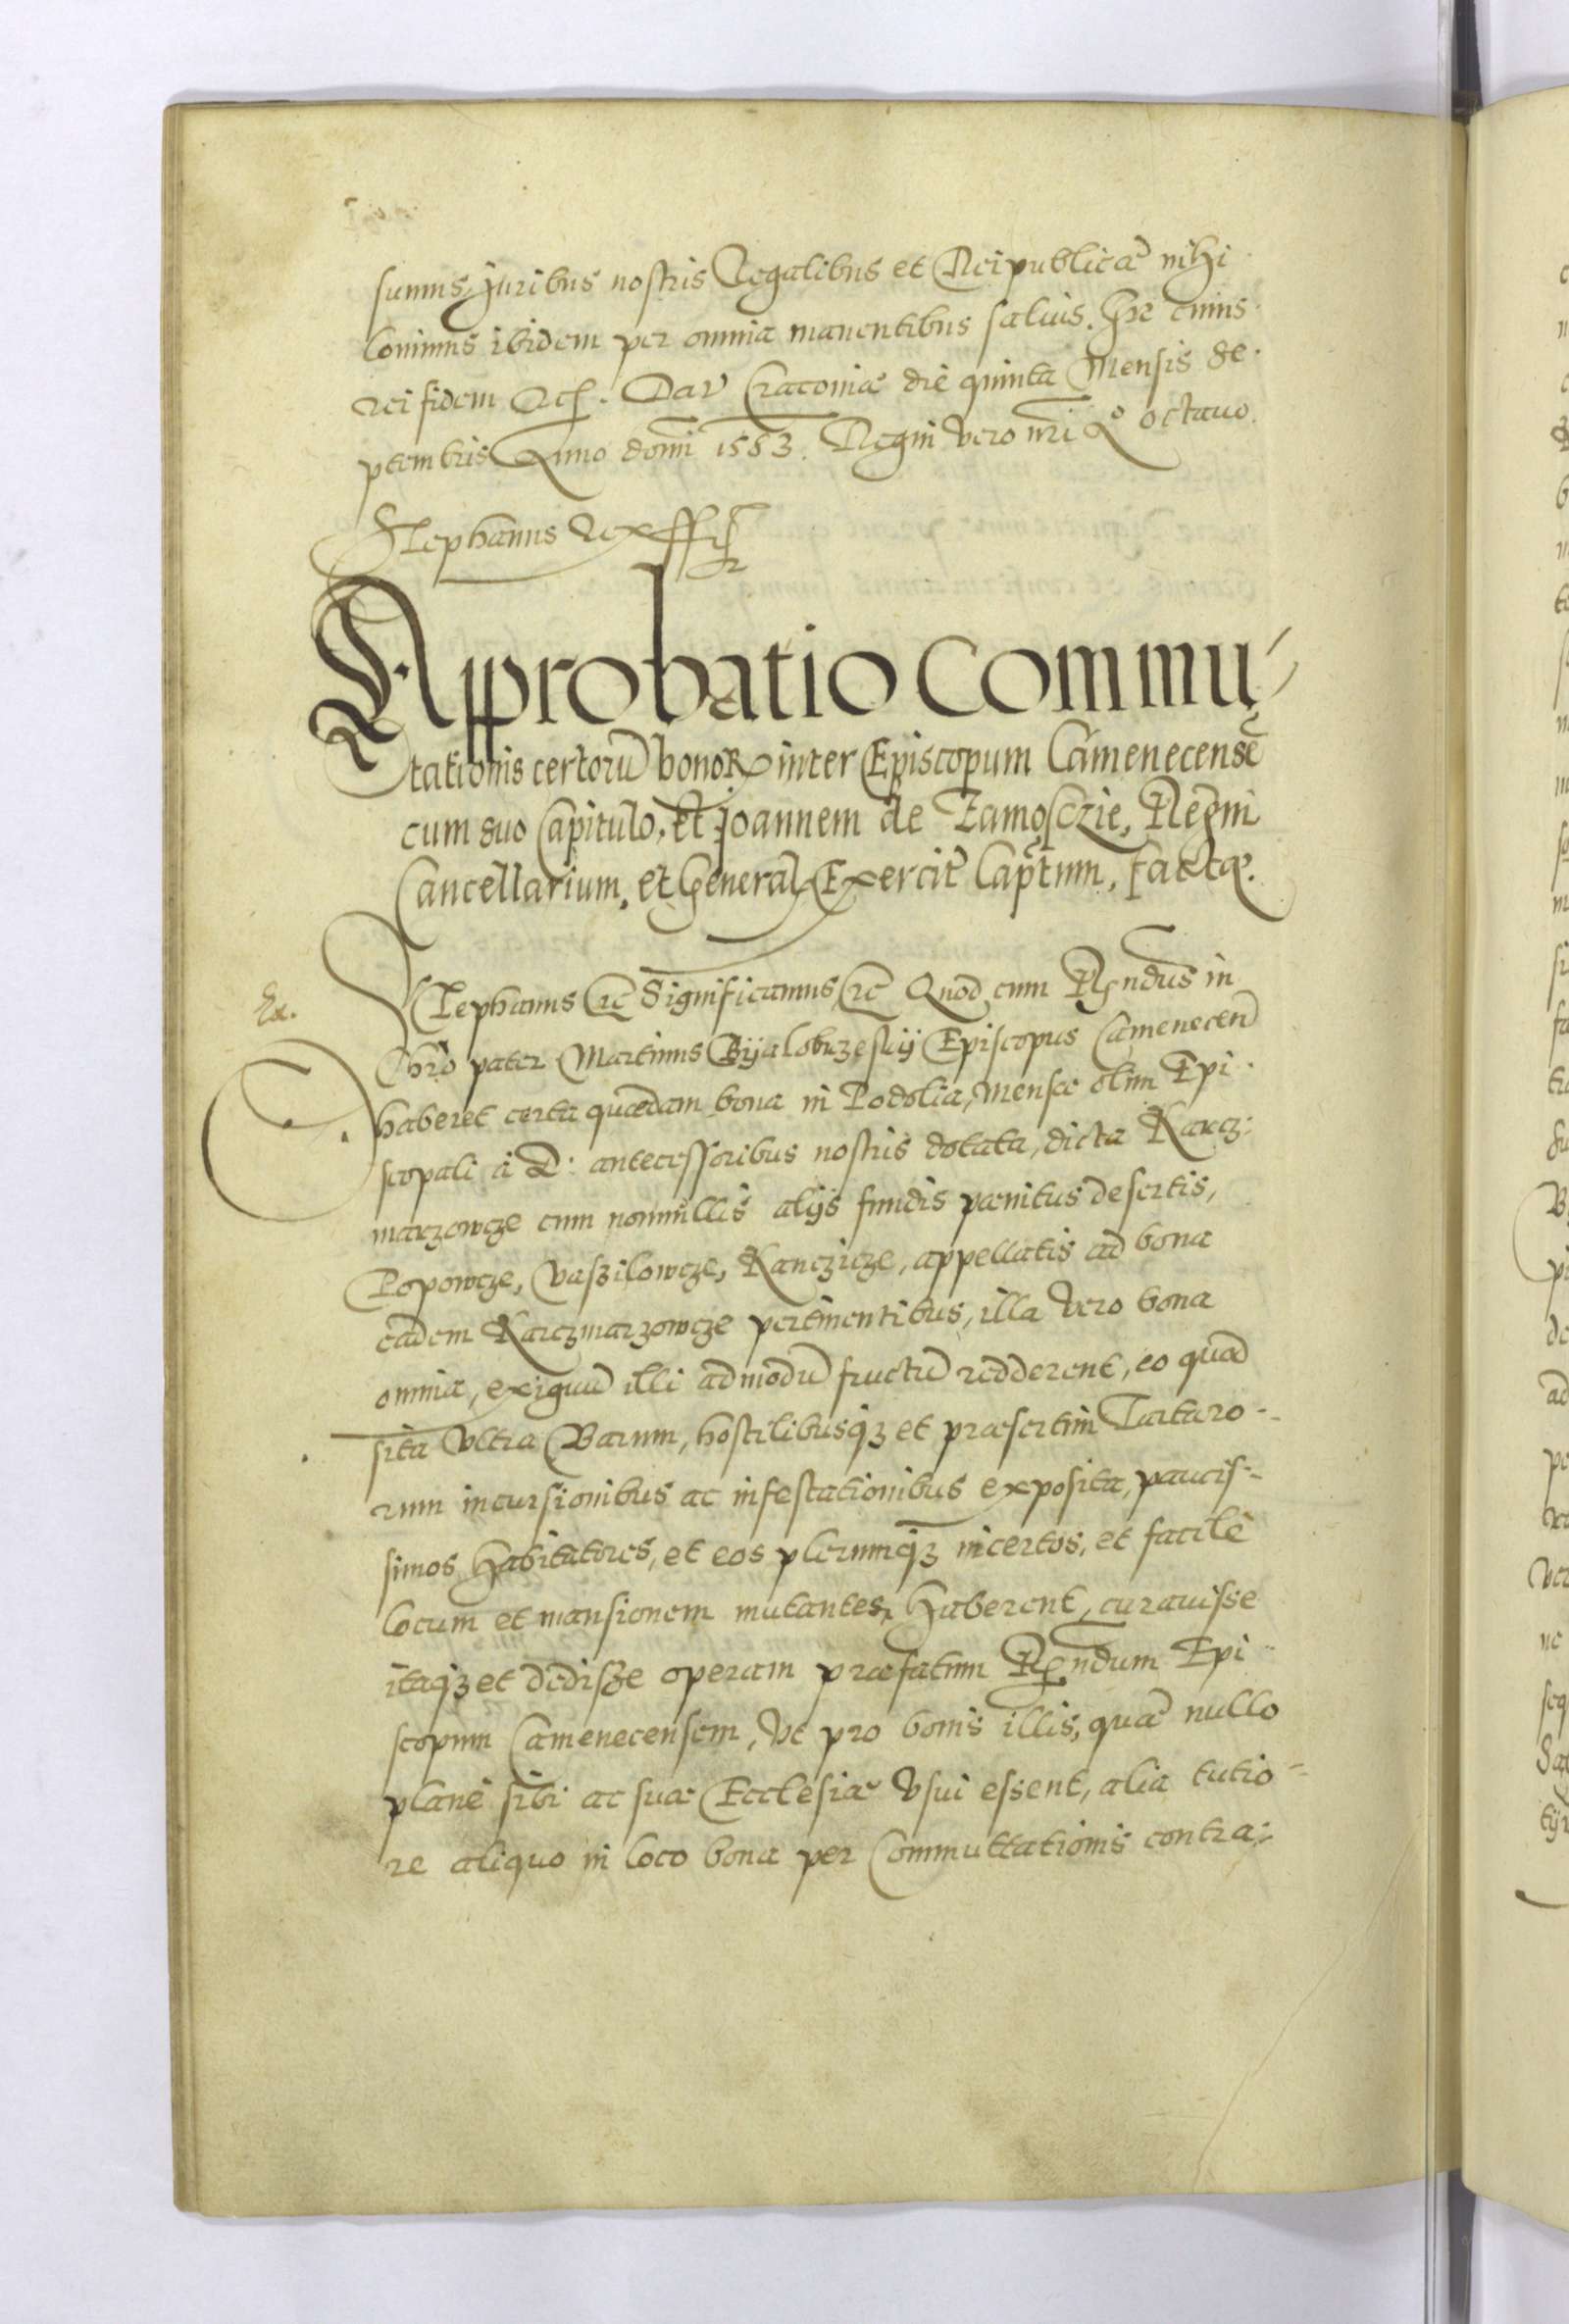 sumus, Juribus nostris Regalibus et Reipublicæ nihi
lominus ibidem per omnia manentibus saluis. In cuius
rei fidem &c. Dat Cracouiæ die quinta Mensis Se
ptembris Anno domi 1583. Regni vero nri Ao octauo.
Stephanus Rex sst
Approbatio Commu
tationis certoru bonor inter Episcopum Camenecense
cum suo Capitulo, et Joannem de Zamosczie, Regni
Cancellarium, et General Exercit Captum, factæ.
Ex.
Stephanus etc Significamus etc Quod cum Rndus in
Chro pater Martinus Byalobrzeskij Episcopus Camenecen
haberet certa quædam bona in Podolia, mensæ olim Epi
scopali à D: antecessoribus nostris dotata, dicta Karcz
marzowcze cum nonnullis alijs fundis pænitus desertis,
Popowcze, Vaszilowcze, Kanczicze, appellatis ad bona
eadem Karczmarzowcze pertinentibus, illa vero bona
omnia, exiguu illi admodu fructu redderent, eo quod
sita vltra Barum, hostilibusqz et præsertim Tartaro
rum incursionibus ac infestationibus exposita, paucis
simos habitatores, et eos plerumqz incertos, et facile
locum et mansionem mutantes, haberent, curauisse
itaqz et dedisze operam præfatum Rndum Epi
scopum Camenecensem, vt pro bonis illis, quæ nullo
planè sibi ac suæ Ecclesiæ vsui essent, alia tutio
re aliquo in loco bona per Commuttationis contra